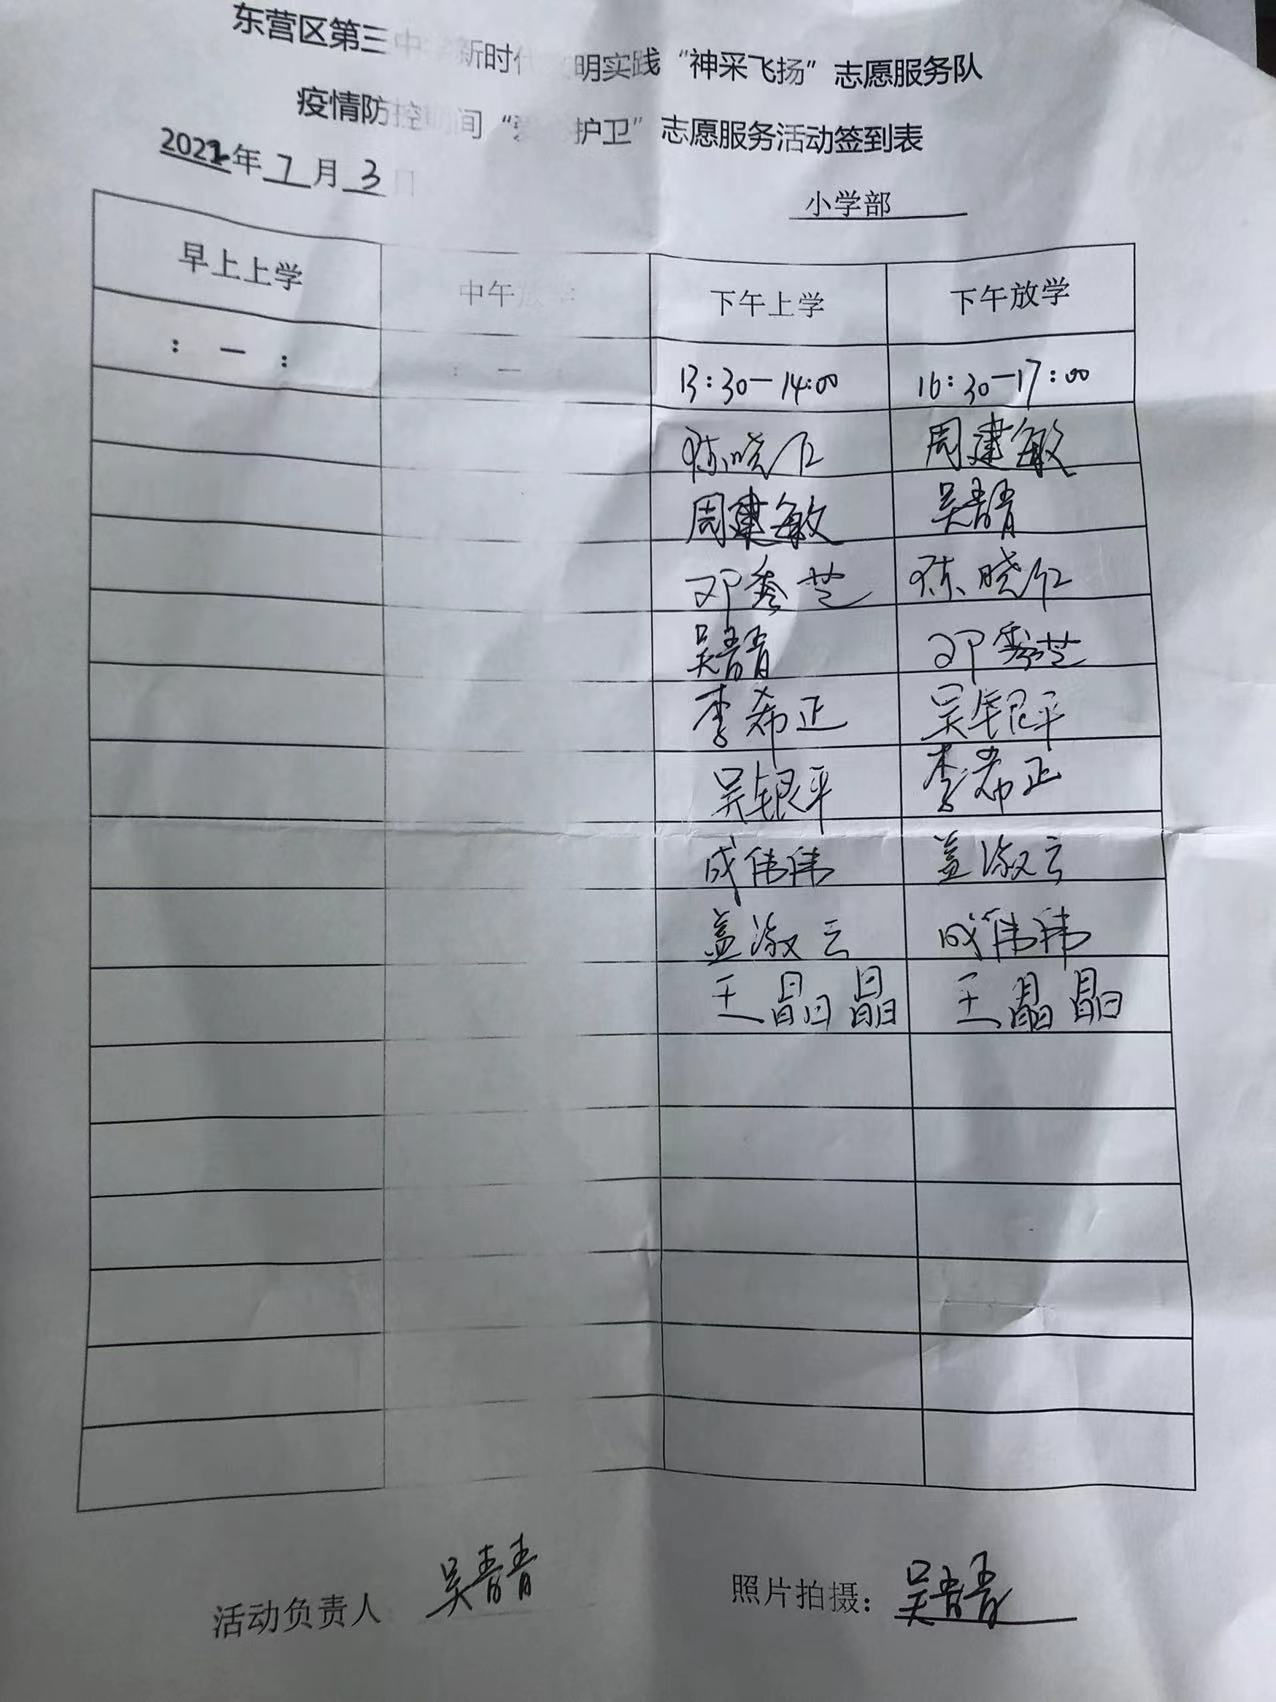 东营区第三中 新时代 明实践“神采飞扬”志愿服务队
疫情防控期间“爱 护卫”志愿服务活动签到表
2022年7月3日
小学部
早上上学 中午放学 下午上学 下午放学
: — : : — : 13:30—14:00 16:30—17:00
陈晓仁 周建敏
周建敏 吴青青
邓秀芝 陈晓仁
吴青青 邓秀芝
李希正 吴银平
吴银平 李希正
成伟伟 盖淑云
盖淑云 成伟伟
王晶晶 王晶晶
活动负责人 吴青青 照片拍摄：吴青青